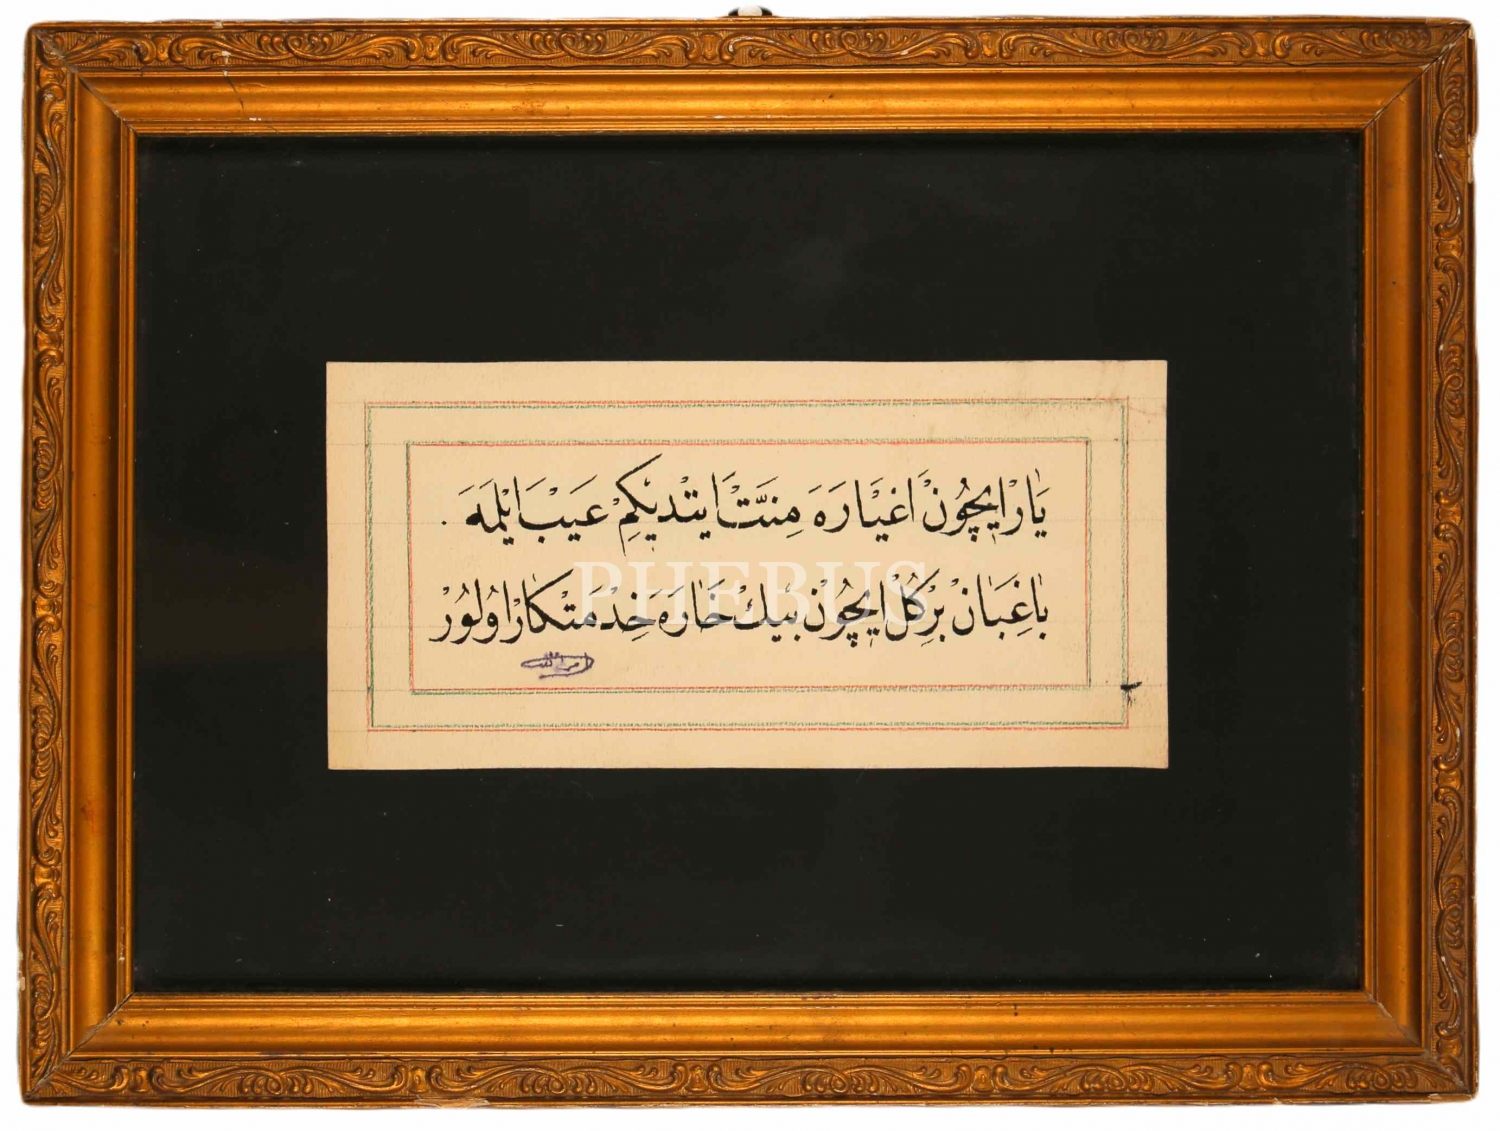 يَارْ ايچُونْ اَغْيَارَه مِنَّتْ ايتْديكِمْ عَيبْ ايْلَمَه
بَاغِبَانْ بِرْ كُلْ ايچُونْ بيكْ خَارَه خِدْمَتْكَارْ اُولُورْ
PHEBUS